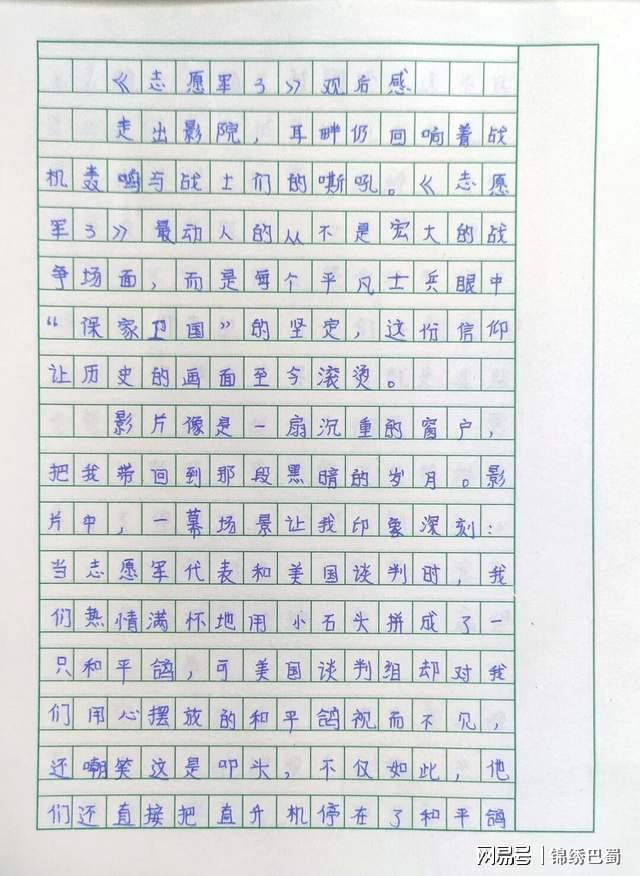 《志愿军3》观后感
走出影院，耳畔仍回响着战
机轰鸣与战士们的嘶吼。《志愿
军3》最动人的从不是宏大的战
争场面，而是每个平凡士兵眼中
“保家卫国”的坚定，这份信仰
让历史的画面至今滚烫。
影片像是一扇沉重的窗户，
把我带回到那段黑暗的岁月。影
片中，一幕场景让我印象深刻：
当志愿军代表和美国谈判时，我
们热情满怀地用小石头拼成了一
只和平鸽，可美国谈判组却对我
们用心摆放的和平鸽视而不见，
还嘲笑这是叩头，不仅如此，他
们还直接把直升机停在了和平鸽
网易号 | 锦绣巴蜀